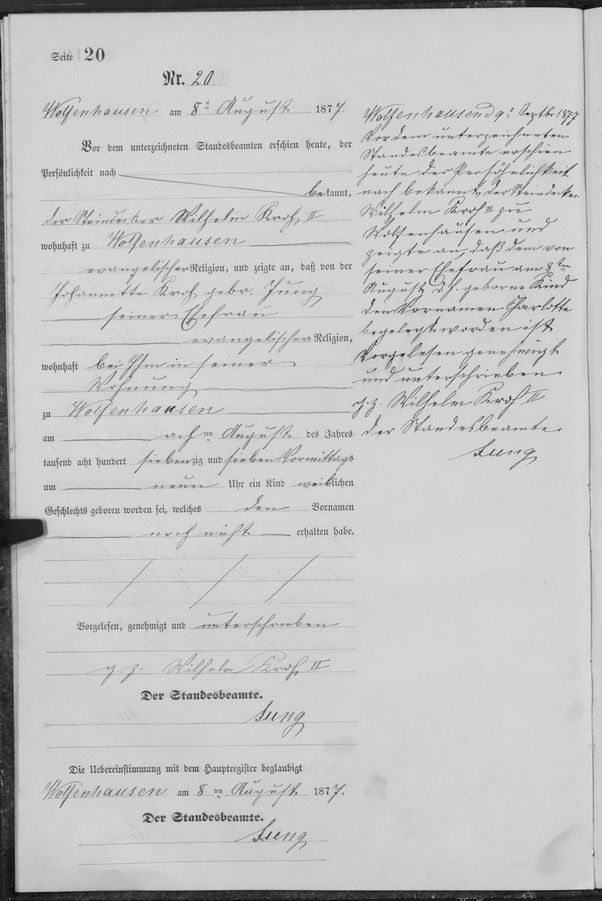 Seite 20
Nr. 20
Wolfenhausen am 8n August 1877.
Vor dem unterzeichneten Standesbeamten erschien heute, der
Persönlichkeit nach
bekannt,
der Steindecker Wilhelm Krof II
wohnhaft zu Wolfenhausen
evangelischer Religion, und zeigte an, daß von der
Johannette Krof gebr. Jung
seiner Ehefrau
evangelischer Religion,
wohnhaft bei Ihm in seiner
Wohnung
zu Wolfenhausen
am acht ten August des Jahres
tausend acht hundert siebenzig und sieben Vormittags
um neun Uhr ein Kind weiblichen
Geschlechts geboren worden sei, welches den Vornamen
noch nicht erhalten habe.
Vorgelesen, genehmigt und unterschrieben
g. z. Wilhelm Krof II
Der Standesbeamte.
Jung
Die Uebereinstimmung mit dem Hauptregister beglaubigt
Wolfenhausen am 8 ten August 1877.
Der Standesbeamte.
Jung
Wolfenhausen d 9n Septbr 1877
Vor dem unterzeichneten
Standesbeamte erschien
heute der Persöhnlichkeit
nach bekannt, der Steindecker
Wilhelm Krof II zu
Wolfenhausen und
zeigte an, daß dem von
seiner Ehefrau am 8ten
August d. J. geborne Kind
den Vornamen Charlotte
begelegt worden ist
Vorgelesen genehmigt
und unterschrieben
g. z. Wilhelm Krof II
der Standesbeamte.
Jung